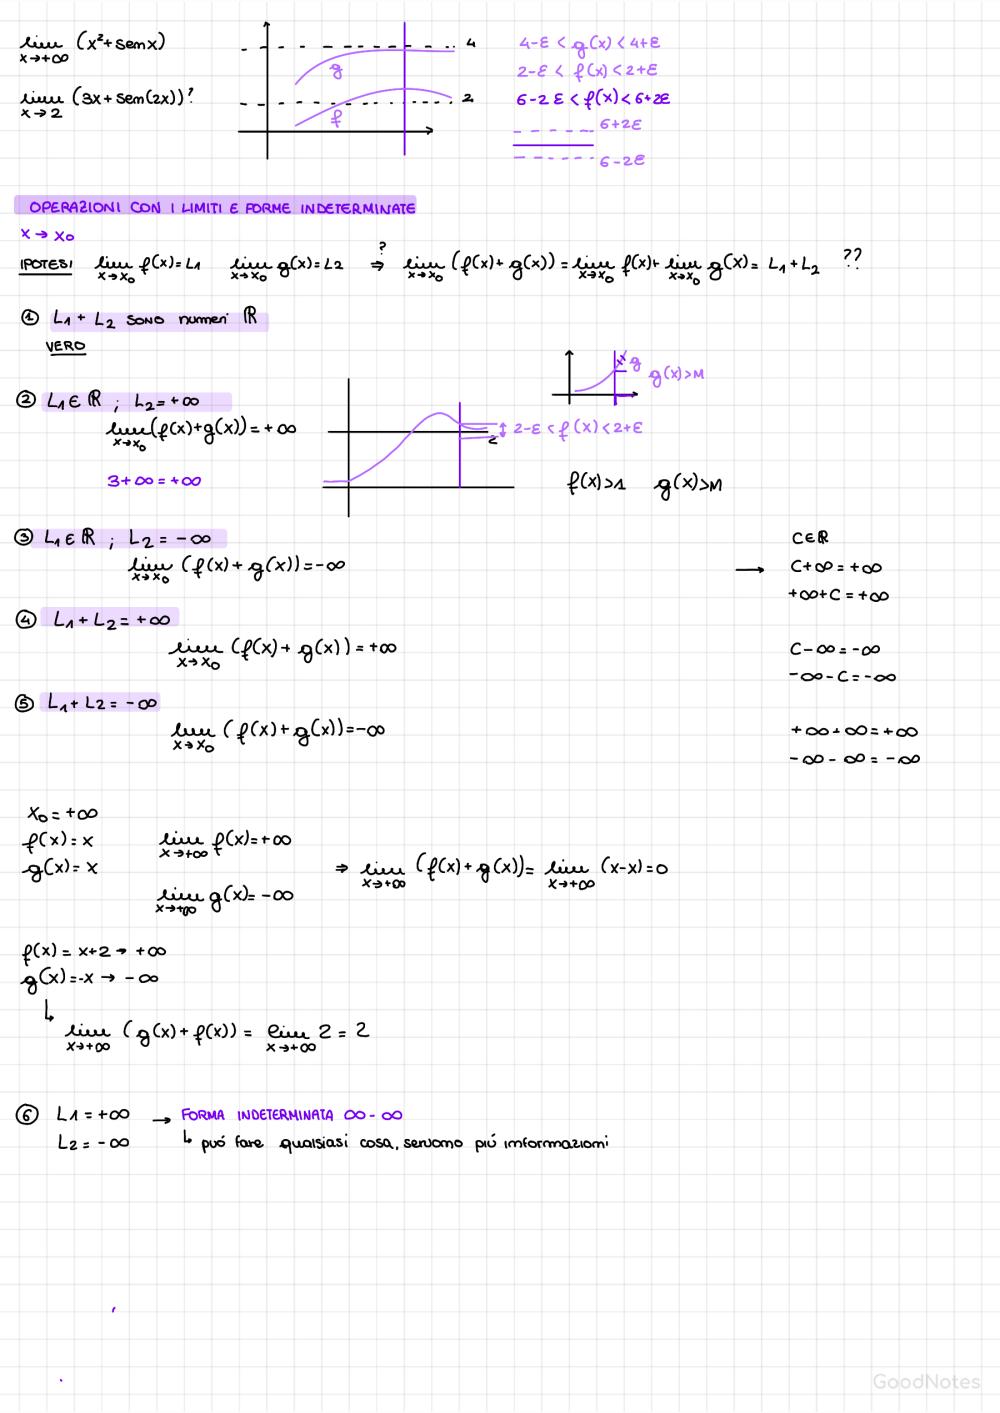 lim x→+∞ (x²+senx)
4
g
4-ε < g(x) < 4+ε
2-ε < f(x) < 2+ε
lim x→2 (3x+sen(2x))?
2
f
6-2ε < f(x) < 6+2ε
6+2ε
6-2ε
OPERAZIONI CON I LIMITI E FORME INDETERMINATE
x → x₀
IPOTESI lim x→x₀ f(x)=L1 lim x→x₀ g(x)=L2 ?⇒ lim x→x₀ (f(x)+g(x)) = lim x→x₀ f(x)+ lim x→x₀ g(x)= L1+L2 ??
① L1+L2 SONO numeri ℝ
VERO
g
g(x)>M
② L1∈ℝ ; L2=+∞
lim x→x₀ (f(x)+g(x))=+∞
2
2-ε < f(x) < 2+ε
3+∞=+∞
f(x)>1 g(x)>M
③ L1∈ℝ ; L2=-∞
C∈ℝ
lim x→x₀ (f(x)+g(x))=-∞
→ C+∞=+∞
+∞+C=+∞
④ L1+L2=+∞
lim x→x₀ (f(x)+g(x))=+∞
C-∞=-∞
-∞-C=-∞
⑤ L1+L2=-∞
lim x→x₀ (f(x)+g(x))=-∞
+∞+∞=+∞
-∞-∞=-∞
x₀=+∞
f(x)=x lim x→+∞ f(x)=+∞
g(x)=x ⇒ lim x→+∞ (f(x)+g(x))= lim x→+∞ (x-x)=0
lim x→+∞ g(x)=-∞
f(x)=x+2 → +∞
g(x)=-x → -∞
↳ lim x→+∞ (g(x)+f(x)) = lim x→+∞ 2=2
⑥ L1=+∞ → FORMA INDETERMINATA ∞-∞
L2=-∞ ↳ può fare qualsiasi cosa, servono più informazioni
GoodNotes